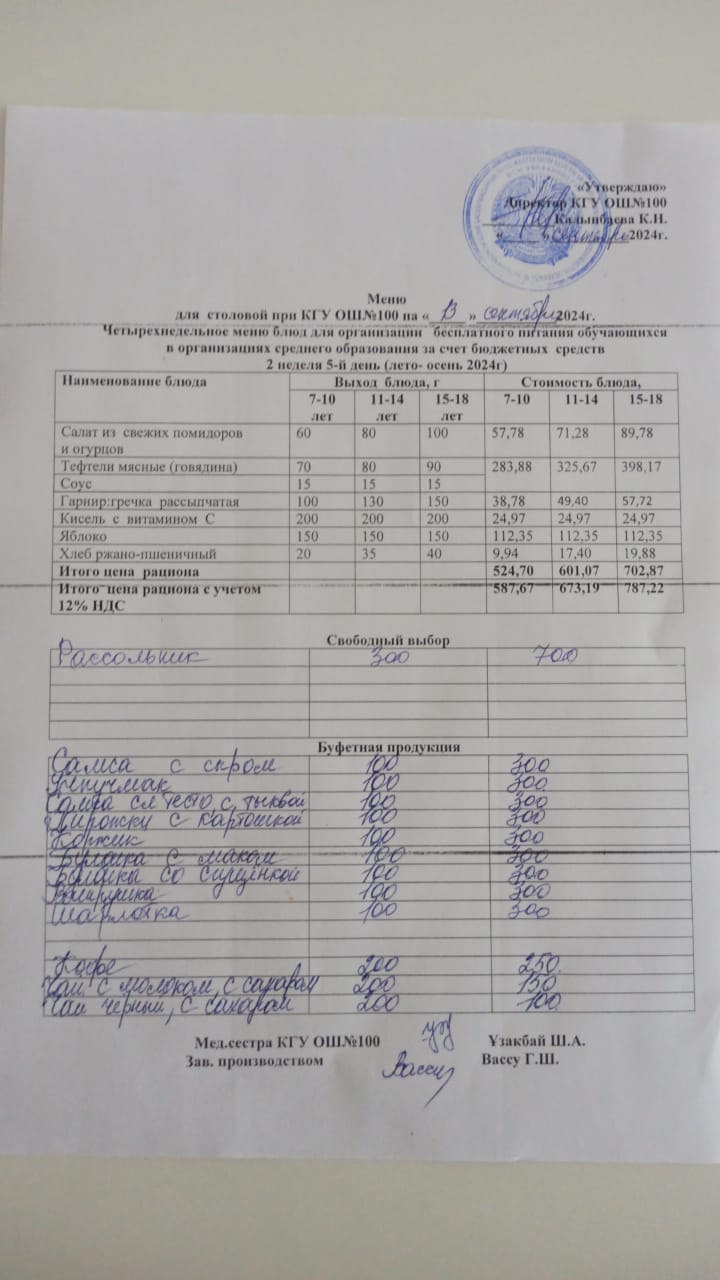 «Утверждаю»
Директор КГУ ОШ№100
Калынбаева К.Н.
« » сентябрь 2024г.
Меню
для столовой при КГУ ОШ№100 на « 13 » сентября 2024г.
Четырехнедельное меню блюд для организации бесплатного питания обучающихся
в организациях среднего образования за счет бюджетных средств
2 неделя 5-й день (лето- осень 2024г)
Наименование блюда Выход блюда, г Стоимость блюда,
7-10 лет 11-14 лет 15-18 лет 7-10 11-14 15-18
Салат из свежих помидоров 60 80 100 57,78 71,28 89,78
и огурцов
Тефтели мясные (говядина) 70 80 90 283,88 325,67 398,17
Соус 15 15 15
Гарнир:гречка рассыпчатая 100 130 150 38,78 49,40 57,72
Кисель с витамином С 200 200 200 24,97 24,97 24,97
Яблоко 150 150 150 112,35 112,35 112,35
Хлеб ржано-пшеничный 20 35 40 9,94 17,40 19,88
Итого цена рациона 524,70 601,07 702,87
Итого цена рациона с учетом 587,67 673,19 787,22
12% НДС
Свободный выбор
Рассольник 300 700
Буфетная продукция
Самса с сыром 100 300
100 300
Самса сл тесто с тыквой 100 300
Пирожки с картошкой 100 300
Коржик 100 300
Булочка с маком 100 300
Булочка со сгущенкой 100 300
Ватрушка 100 300
Шарлотка 100 300
Кофе 200 250.
Чай с молоком, с сахаром 200 150
Чай черный, с сахаром 200 100
Мед.сестра КГУ ОШ№100 Ұзакбай Ш.А.
Зав. производством Вассу Вассу Г.Ш.